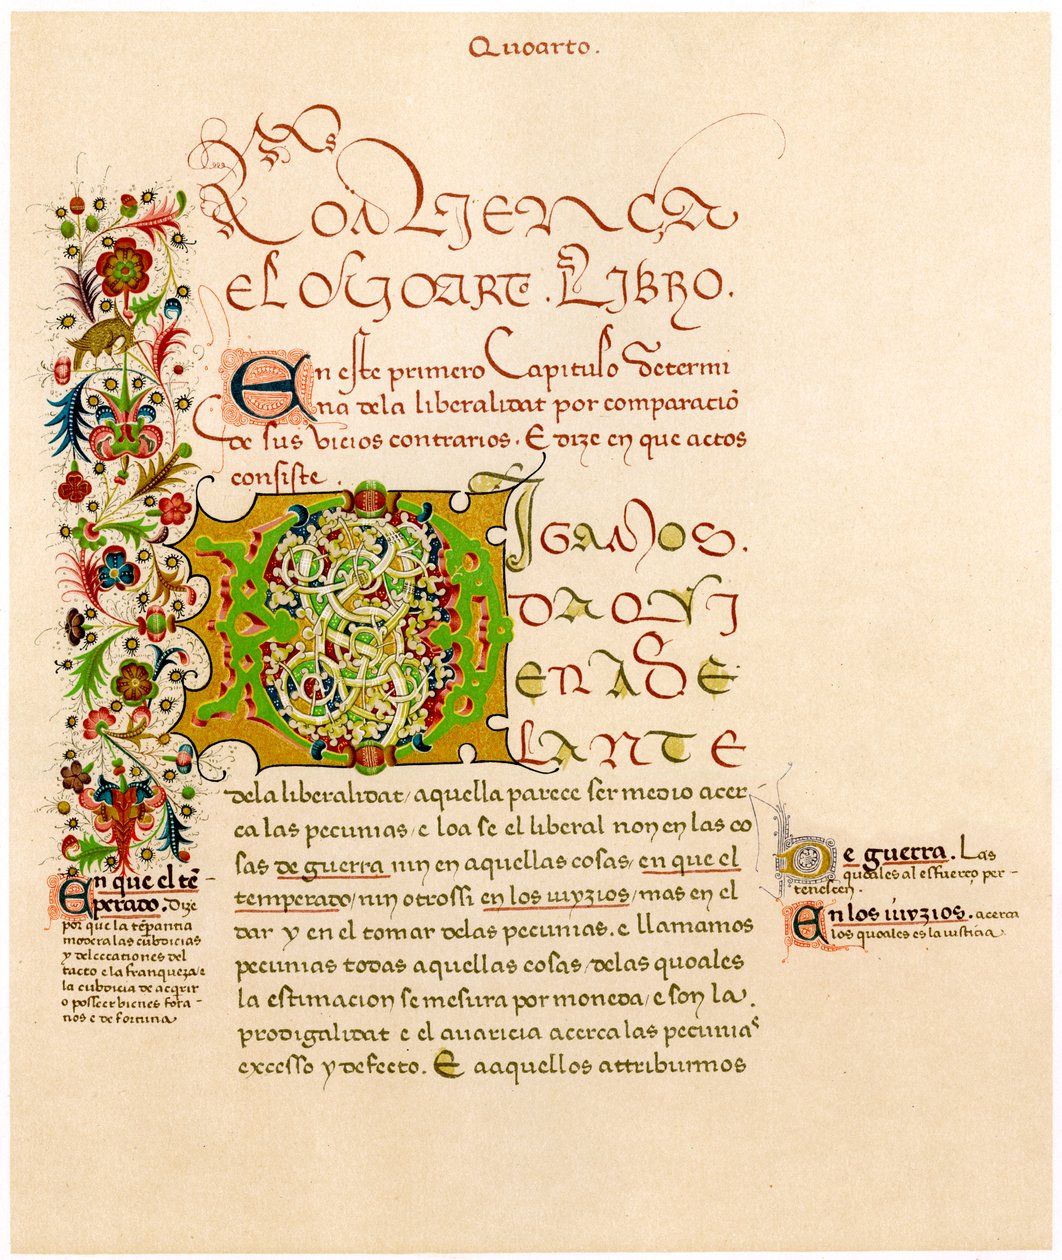 Quoarto.
Comiença
el Quoarto. Libro.
En este primero Capitulo Determi
na dela liberalidat por comparacio͂
de sus vicios contrarios. E dize en que actos
consiste.
Digamos.
daqui
enade
lante
dela liberalidat/ aquella parece ser medio acer
ca las pecunias/ e loa se el liberal non en las co
sas de guerra nin en aquellas cosas/ en que el
temperado/ nin otrossi en los iuyzios/ mas en el
dar y en el tomar delas pecunias. e llamamos
pecunias todas aquellas cosas/ delas quoales
la estimacion se mesura por moneda/ e son la.
prodigalidat e el auaricia acerca las pecunias
excesso y defecto. E aaquellos attribuimos
En que el te͂
perado. Dize
por que la te͂prantia
modera las cubdicias
y delectationes del
tacto e la franqueza/ e
la cubdicia de acqrir
o posseer bienes fora-
nos e de fortuna
De guerra. Las
quoales al esfuerço per-
tenescen.
En los iuyzios. acerca
los quoales es la iusticia.